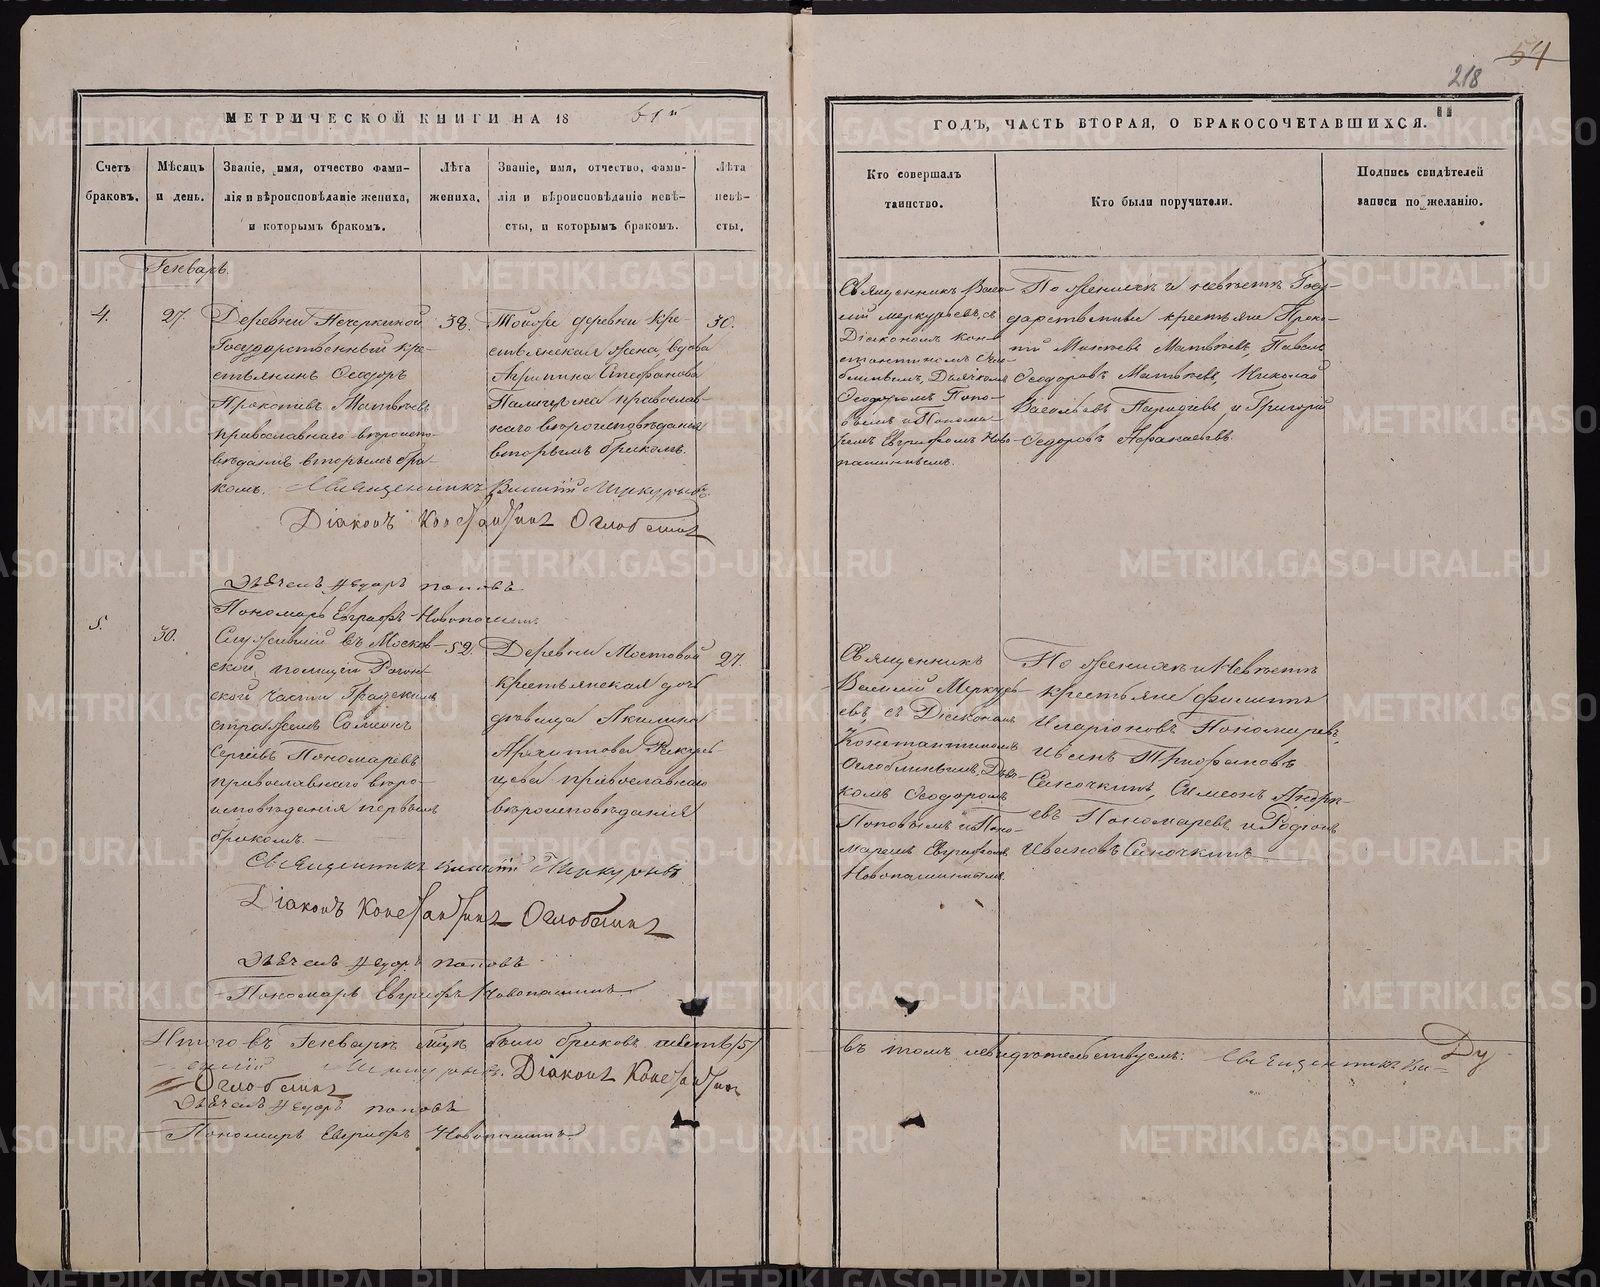 54
218
МЕТРИЧЕСКОЙ КНИГИ НА 18 61й
ГОДЪ, ЧАСТЬ ВТОРАЯ, О БРАКОСОЧЕТАВШИХСЯ.
Счетъ браковъ.
Мѣсяцъ и день.
Званіе, имя, отчество фами-
лія и вѣроисповѣданіе жениха,
и которымъ бракомъ.
Лѣта жениха.
Званіе, имя, отчество, фами-
лія и вѣроисповѣданіе невѣ-
сты, и которымъ бракомъ.
Лѣта невѣ-
сты.
Кто совершалъ
таинство.
Кто были поручители.
Подпись свидѣтелей
записи по желанію.
Генварь.
4.
27.
Деревни Печеркиной
Государственный кре-
стьянинъ Ѳеодоръ
Прокопіевъ Матвѣевъ
православнаго вѣроиспо-
вѣданія вторымъ бра-
комъ.
38.
Тойже деревни кре-
стьянская жена, вдова
Агрипина Стефанова
православ-
наго вѣроисповѣданія
вторымъ бракомъ.
30.
Священникъ Васи-
лій Меркурьевъ, съ
Діакономъ Кон-
стантиномъ Огло-
блинымъ, Дьячкомъ
Ѳеодоромъ Попо-
вымъ и Понома-
ремъ Евграфомъ Ново-
пашинымъ.
По женихѣ и невѣстѣ Госу-
дарственные крестьяне Проко-
пій Матвѣевъ, Павелъ
Ѳеодоровъ Матвѣевъ, Николай
Васильевъ и Григорій
Ѳедоровъ Афанасьевъ.
Священникъ Василій Меркурьевъ.
Діаконъ Константинъ Оглоблинъ
Дьячекъ Ѳедоръ Поповъ
Пономарь Евграфъ Новопашинъ.
5.
30.
Служившій въ Москов-
ской полиціи Рогож-
ской части Градскимъ
стражемъ Симеонъ
Сергѣевъ Пономаревъ
православнаго вѣро-
исповѣданія первымъ
бракомъ.
52.
Деревни Мостовой
крестьянская дочь
дѣвица Акилина
Архиппова
православнаго
вѣроисповѣданія
27.
Священникъ
Василій Меркурь-
евъ, съ Діакономъ
Константиномъ
Оглоблинымъ, Дьяч-
комъ Ѳеодоромъ
Поповымъ и Поно-
маремъ Евграфомъ
Новопашинымъ.
По женихѣ и невѣстѣ
крестьяне Филиппъ
Иларіоновъ Пономаревъ,
Иванъ Трифоновъ
Симеонъ Андре-
евъ Пономаревъ и Родіонъ
Ивановъ
Священникъ Василій Меркурьевъ
Діаконъ Константинъ Оглоблинъ
Дьячекъ Ѳедоръ Поповъ
Пономарь Евграфъ Новопашинъ.
Итого въ Генварѣ мцѣ было браковъ пять /5/
въ томъ и свидѣтельствуемъ: Священникъ Ва-
силій Меркурьевъ. Діаконъ Константинъ
Оглоблинъ
Дьячекъ Ѳедоръ Поповъ
Пономарь Евграфъ Новопашинъ
METRIKI.GASO-URAL.RU